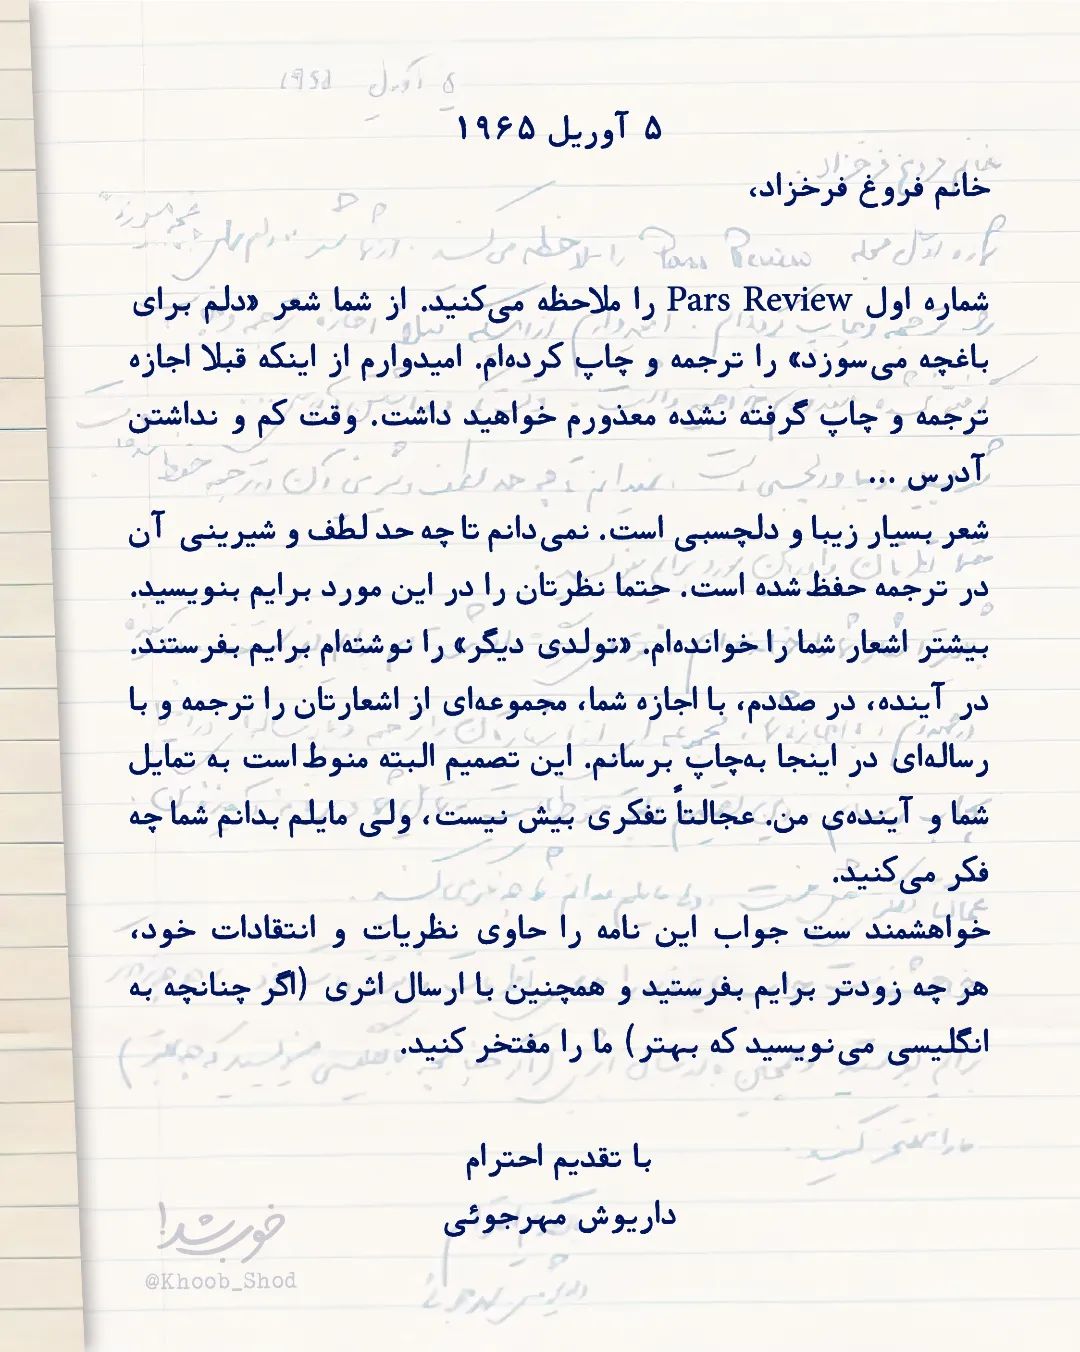 ۵ آوریل ۱۹۶۵
خانم فروغ فرخزاد،
شماره اول Pars Review را ملاحظه می‌کنید. از شما شعر «دلم برای
باغچه می‌سوزد» را ترجمه و چاپ کرده‌ام. امیدوارم از اینکه قبلا اجازه
ترجمه و چاپ گرفته نشده معذورم خواهید داشت. وقت کم و نداشتن
آدرس ...
شعر بسیار زیبا و دلچسبی است. نمی‌دانم تا چه حد لطف و شیرینی آن
در ترجمه حفظ شده است. حتما نظرتان را در این مورد برایم بنویسید.
بیشتر اشعار شما را خوانده‌ام. «تولدی دیگر» را نوشته‌ام برایم بفرستند.
در آینده، در صددم، با اجازه شما، مجموعه‌ای از اشعارتان را ترجمه و با
رساله‌ای در اینجا به‌چاپ برسانم. این تصمیم البته منوط است به تمایل
شما و آینده‌ی من. عجالتاً تفکری بیش نیست، ولی مایلم بدانم شما چه
فکر می‌کنید.
خواهشمند ست جواب این نامه را حاوی نظریات و انتقادات خود،
هر چه زودتر برایم بفرستید و همچنین با ارسال اثری (اگر چنانچه به
انگلیسی می‌نویسید که بهتر) ما را مفتخر کنید.
با تقدیم احترام
داریوش مهرجوئی
خوب شد!
@Khoob_Shod